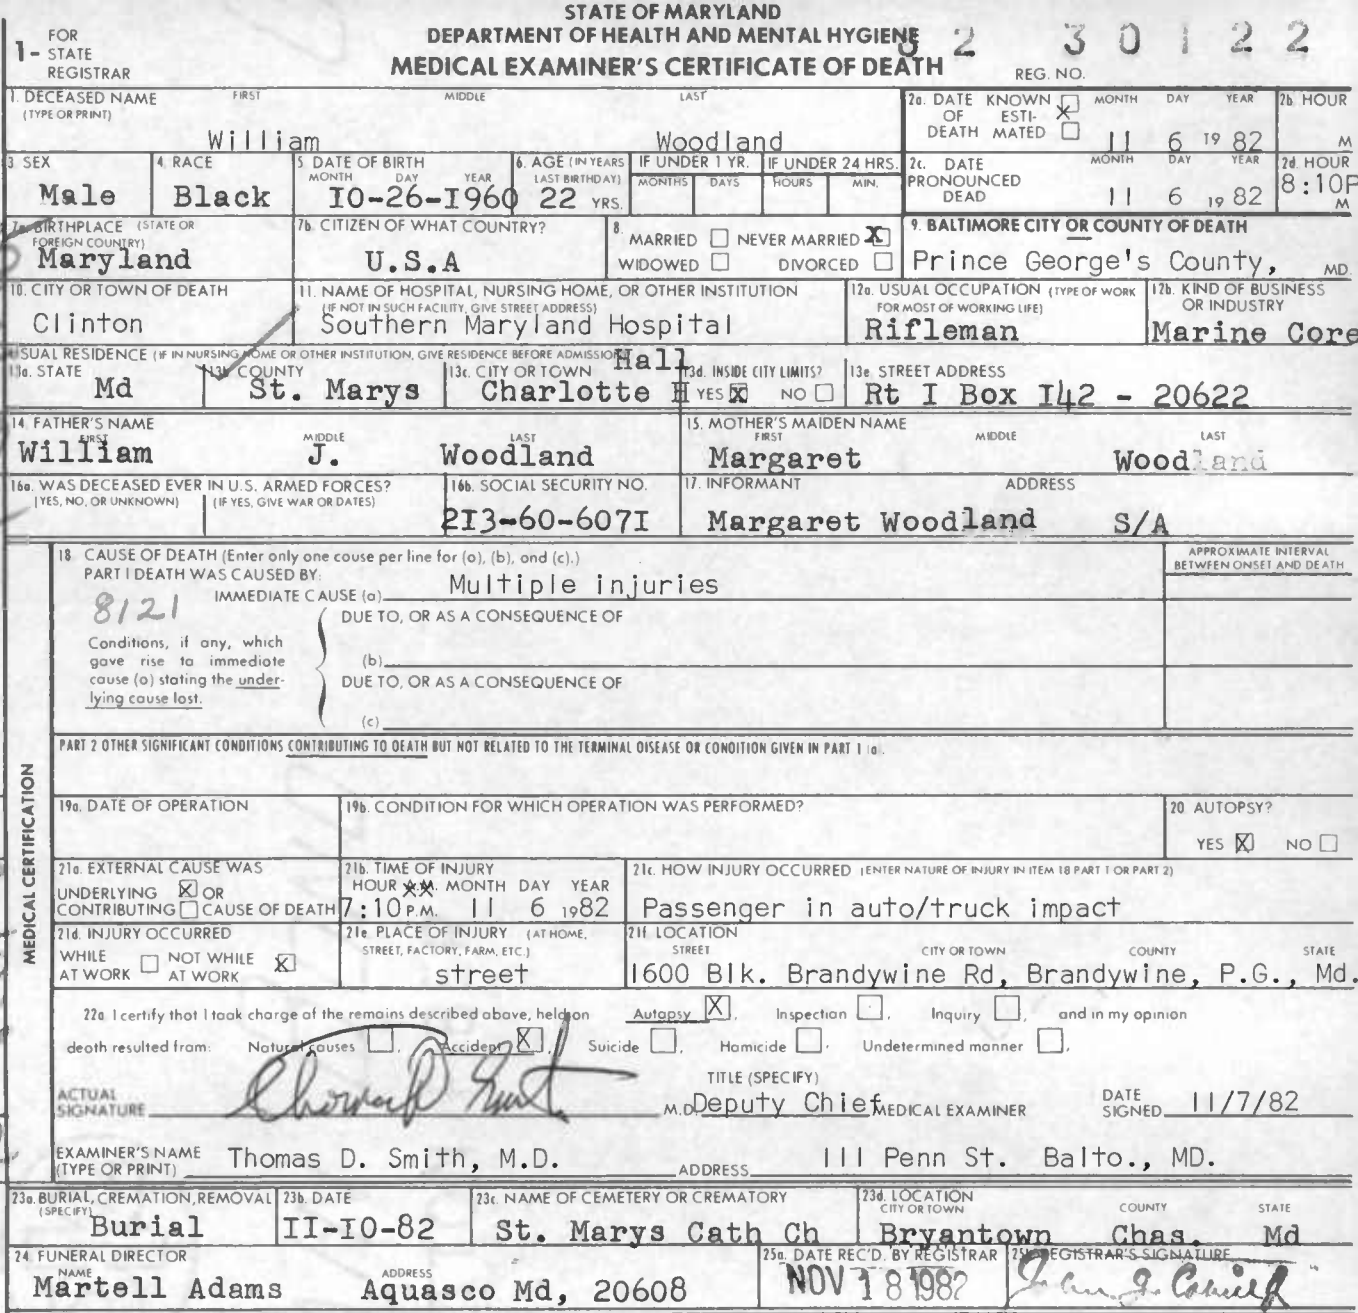 STATE OF MARYLAND
DEPARTMENT OF HEALTH AND MENTAL HYGIENE
MEDICAL EXAMINER'S CERTIFICATE OF DEATH
1- FOR STATE REGISTRAR
82 30122
REG. NO.
1. DECEASED NAME (TYPE OR PRINT) FIRST MIDDLE LAST
William Woodland
2a. DATE OF DEATH KNOWN ☐ ESTIMATED ☐ X MONTH DAY YEAR 2b. HOUR
11 6 19 82 M
3 SEX 4. RACE 5. DATE OF BIRTH MONTH DAY YEAR 6. AGE (IN YEARS LAST BIRTHDAY) IF UNDER 1 YR. MONTHS DAYS IF UNDER 24 HRS. HOURS MIN.
Male Black IO-26-I960 22 YRS.
2c. DATE PRONOUNCED DEAD MONTH DAY YEAR 2d. HOUR
11 6 19 82 8:10P M
7a. BIRTHPLACE (STATE OR FOREIGN COUNTRY) 7b. CITIZEN OF WHAT COUNTRY?
Maryland U.S.A
8. MARRIED ☐ NEVER MARRIED ☒
WIDOWED ☐ DIVORCED ☐
9. BALTIMORE CITY OR COUNTY OF DEATH
Prince George's County, MD.
10. CITY OR TOWN OF DEATH
Clinton
11. NAME OF HOSPITAL, NURSING HOME, OR OTHER INSTITUTION
(IF NOT IN SUCH FACILITY, GIVE STREET ADDRESS)
Southern Maryland Hospital
12a. USUAL OCCUPATION (TYPE OF WORK FOR MOST OF WORKING LIFE)
Rifleman
12b. KIND OF BUSINESS OR INDUSTRY
Marine Core
USUAL RESIDENCE (IF IN NURSING HOME OR OTHER INSTITUTION, GIVE RESIDENCE BEFORE ADMISSION)
13a. STATE 13b. COUNTY 13c. CITY OR TOWN 13d. INSIDE CITY LIMITS? 13e. STREET ADDRESS
Hall
Md St. Marys Charlotte H YES ☒ NO ☐ Rt I Box I42 - 20622
14. FATHER'S NAME FIRST MIDDLE LAST
William J. Woodland
15. MOTHER'S MAIDEN NAME FIRST MIDDLE LAST
Margaret Woodland
16a. WAS DECEASED EVER IN U.S. ARMED FORCES?
(YES, NO, OR UNKNOWN) (IF YES, GIVE WAR OR DATES)
16b. SOCIAL SECURITY NO.
2I3-60-607I
17. INFORMANT ADDRESS
Margaret Woodland S/A
MEDICAL CERTIFICATION
18. CAUSE OF DEATH (Enter only one couse per line for (a), (b), and (c).)
APPROXIMATE INTERVAL BETWEEN ONSET AND DEATH
PART I DEATH WAS CAUSED BY:
IMMEDIATE CAUSE (a) Multiple injuries
8121
DUE TO, OR AS A CONSEQUENCE OF
Conditions, if any, which gave rise to immediate cause (a) stating the underlying cause lost.
(b)
DUE TO, OR AS A CONSEQUENCE OF
(c)
PART 2 OTHER SIGNIFICANT CONDITIONS CONTRIBUTING TO DEATH BUT NOT RELATED TO THE TERMINAL DISEASE OR CONDITION GIVEN IN PART 1 (a).
19a. DATE OF OPERATION
19b. CONDITION FOR WHICH OPERATION WAS PERFORMED?
20 AUTOPSY?
YES ☒ NO ☐
21a. EXTERNAL CAUSE WAS
UNDERLYING ☒ OR
CONTRIBUTING ☐ CAUSE OF DEATH
21b. TIME OF INJURY
HOUR A.M. MONTH DAY YEAR
7:10 P.M. 11 6 1982
21c. HOW INJURY OCCURRED (ENTER NATURE OF INJURY IN ITEM 18 PART 1 OR PART 2)
Passenger in auto/truck impact
21d. INJURY OCCURRED
WHILE AT WORK ☐ NOT WHILE AT WORK ☒
21e. PLACE OF INJURY (AT HOME, STREET, FACTORY, FARM, ETC.)
street
21f. LOCATION
STREET CITY OR TOWN COUNTY STATE
1600 Blk. Brandywine Rd, Brandywine, P.G., Md.
22a. I certify that I took charge of the remains described above, held on Autopsy ☒, Inspection ☐, Inquiry ☐, and in my opinion
death resulted from: Natural causes ☐, Accident ☒, Suicide ☐, Homicide ☐, Undetermined manner ☐.
ACTUAL SIGNATURE
TITLE (SPECIFY)
M.D. Deputy Chief MEDICAL EXAMINER
DATE SIGNED 11/7/82
EXAMINER'S NAME (TYPE OR PRINT) Thomas D. Smith, M.D. ADDRESS 111 Penn St. Balto., MD.
23a. BURIAL, CREMATION, REMOVAL (SPECIFY) 23b. DATE 23c. NAME OF CEMETERY OR CREMATORY 23d. LOCATION CITY OR TOWN COUNTY STATE
Burial II-I0-82 St. Marys Cath Ch Bryantown Chas. Md
24 FUNERAL DIRECTOR
NAME ADDRESS
Martell Adams Aquasco Md, 20608
25a. DATE REC'D. BY REGISTRAR
NOV 18 1982
25b. REGISTRAR'S SIGNATURE